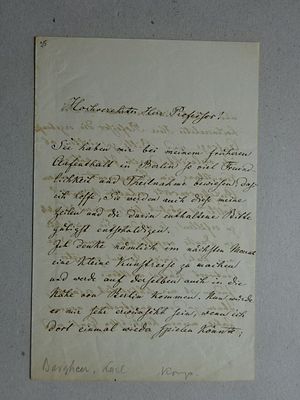 Hochverehrter Herr Professor!
Sie haben mir bei meinem früheren
Aufenthalt in Berlin so viel Freund
lichkeit und Theilnahme bewiesen, daß
ich hoffe, Sie werden auch diese meine
Zeilen und die darin enthaltene Bitte
gütigst entschuldigen.
Ich denke nämlich im nächsten Monat
eine kleine Kunstreise zu machen
und werde auf derselben auch in die
Nähe von Berlin kommen. Nun würde
es mir sehr erwünscht sein, wenn ich
dort einmal wieder spielen könnte,
Bargheer, Carl